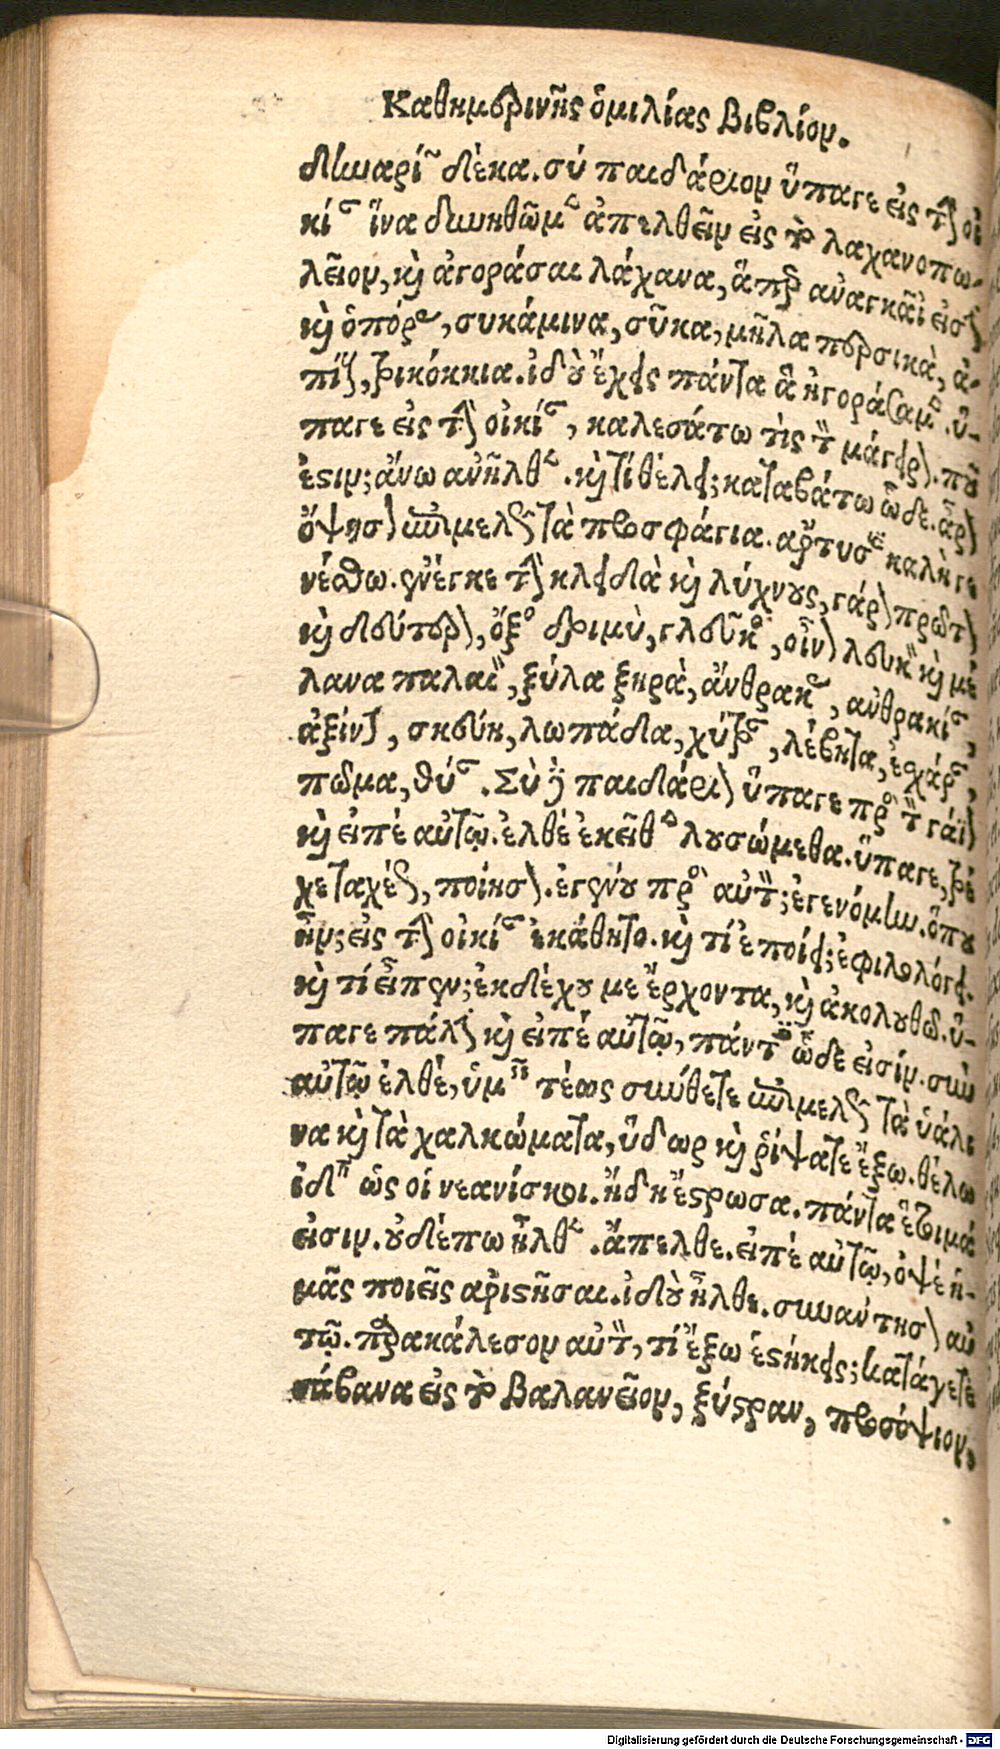 Καθημερινῆς ὁμιλίας Βιβλίον.
δίωαρί~ δέκα. σύ παιδάριον ὕπαγε εἰς τὴν οἰ
κίαν ἵνα δυνηθῶμεν ἀπελθεῖν εἰς τὸ λαχανοπω-
λεῖον, καὶ ἀγοράσαι λάχανα, ἅπερ ἀναγκαῖά εἰσιν
καὶ ὀπώρας, συκάμινα, σῦκα, μῆλα περσικὰ, ἀ-
πίδιν, βρικόκκια. ἰδοὺ ἔχεις πάντα ἃ ἠγοράσαμεν. ὕ-
παγε εἰς τὴν οἰκίαν, καλεσάτω τὶς τὸν μάγειρον. ποῦ
ἐστιν; ἄνω ἀνῆλθεν. καὶ τί θέλεις; καταβάτω ὧδε. ἆρον
ὄψησον ἐπιμελῶς τὰ προσφάγια. ἄρτυσις καλὴ γε
νέσθω. ἔνεγκε τὴν κλειδὰ καὶ λύχνους, γάρον πρῶτον
καὶ δεύτερον, ὄξος δριμὺ, γλεῦκος, οἶνον λευκὸν καὶ μέ
λανα παλαιὸν, ξύλα ξηρὰ, ἄνθρακας, ἀνθρακίαν,
ἀξίνην, σκεύη, λωπάδια, χύτρας, λέβητα, ἐσχάραν,
πῶμα, θύαν. Σὺ δὲ παιδάριον ὕπαγε πρὸς τὸν γάϊον
καὶ εἰπὲ αὐτῷ. ἐλθὲ ἐκεῖθεν λουσώμεθα. ὕπαγε, τρέ
χε ταχέως, ποίησον. ἐγένου πρὸς αὐτὸν; ἐγενόμην. ὅπου
ἦν; εἰς τὴν οἰκίαν ἐκάθητο. καὶ τί ἐποίει; ἐφιλολόγει.
καὶ τί εἶπεν; ἐκδέχου με ἔρχοντα, καὶ ἀκολουθῶ. ὕ-
παγε πάλιν καὶ εἰπὲ αὐτῷ, πάντες ὧδε εἰσίν. σὺν
αὐτῷ ἐλθέ, ὑμεῖς τέως σιωύθετε ἐπιμελῶς τὰ ὑάλι
να καὶ τὰ χαλκώματα, ὕδωρ καὶ ῥίψατε ἔξω. θέλω
ἰδεῖν ὡς οἱ νεανίσκοι. ἤδη ἔστρωσα. πάντα ἕτοιμά
εἰσιν. οὐδέπω ἦλθεν. ἄπελθε. εἰπὲ αὐτῷ, ὀψὲ ἡ-
μᾶς ποιεῖς ἀριστῆσαι. ἰδοὺ ἦλθε. συναντησον αὐ
τῷ. παρακάλεσον αὐτὸν, τί ἔξω ἑστήκεις; κατάγετε
σάβανα εἰς τὸ βαλανεῖον, ξύστραν, προσόψιον,
Digitalisierung gefördert durch die Deutsche Forschungsgemeinschaft - DFG